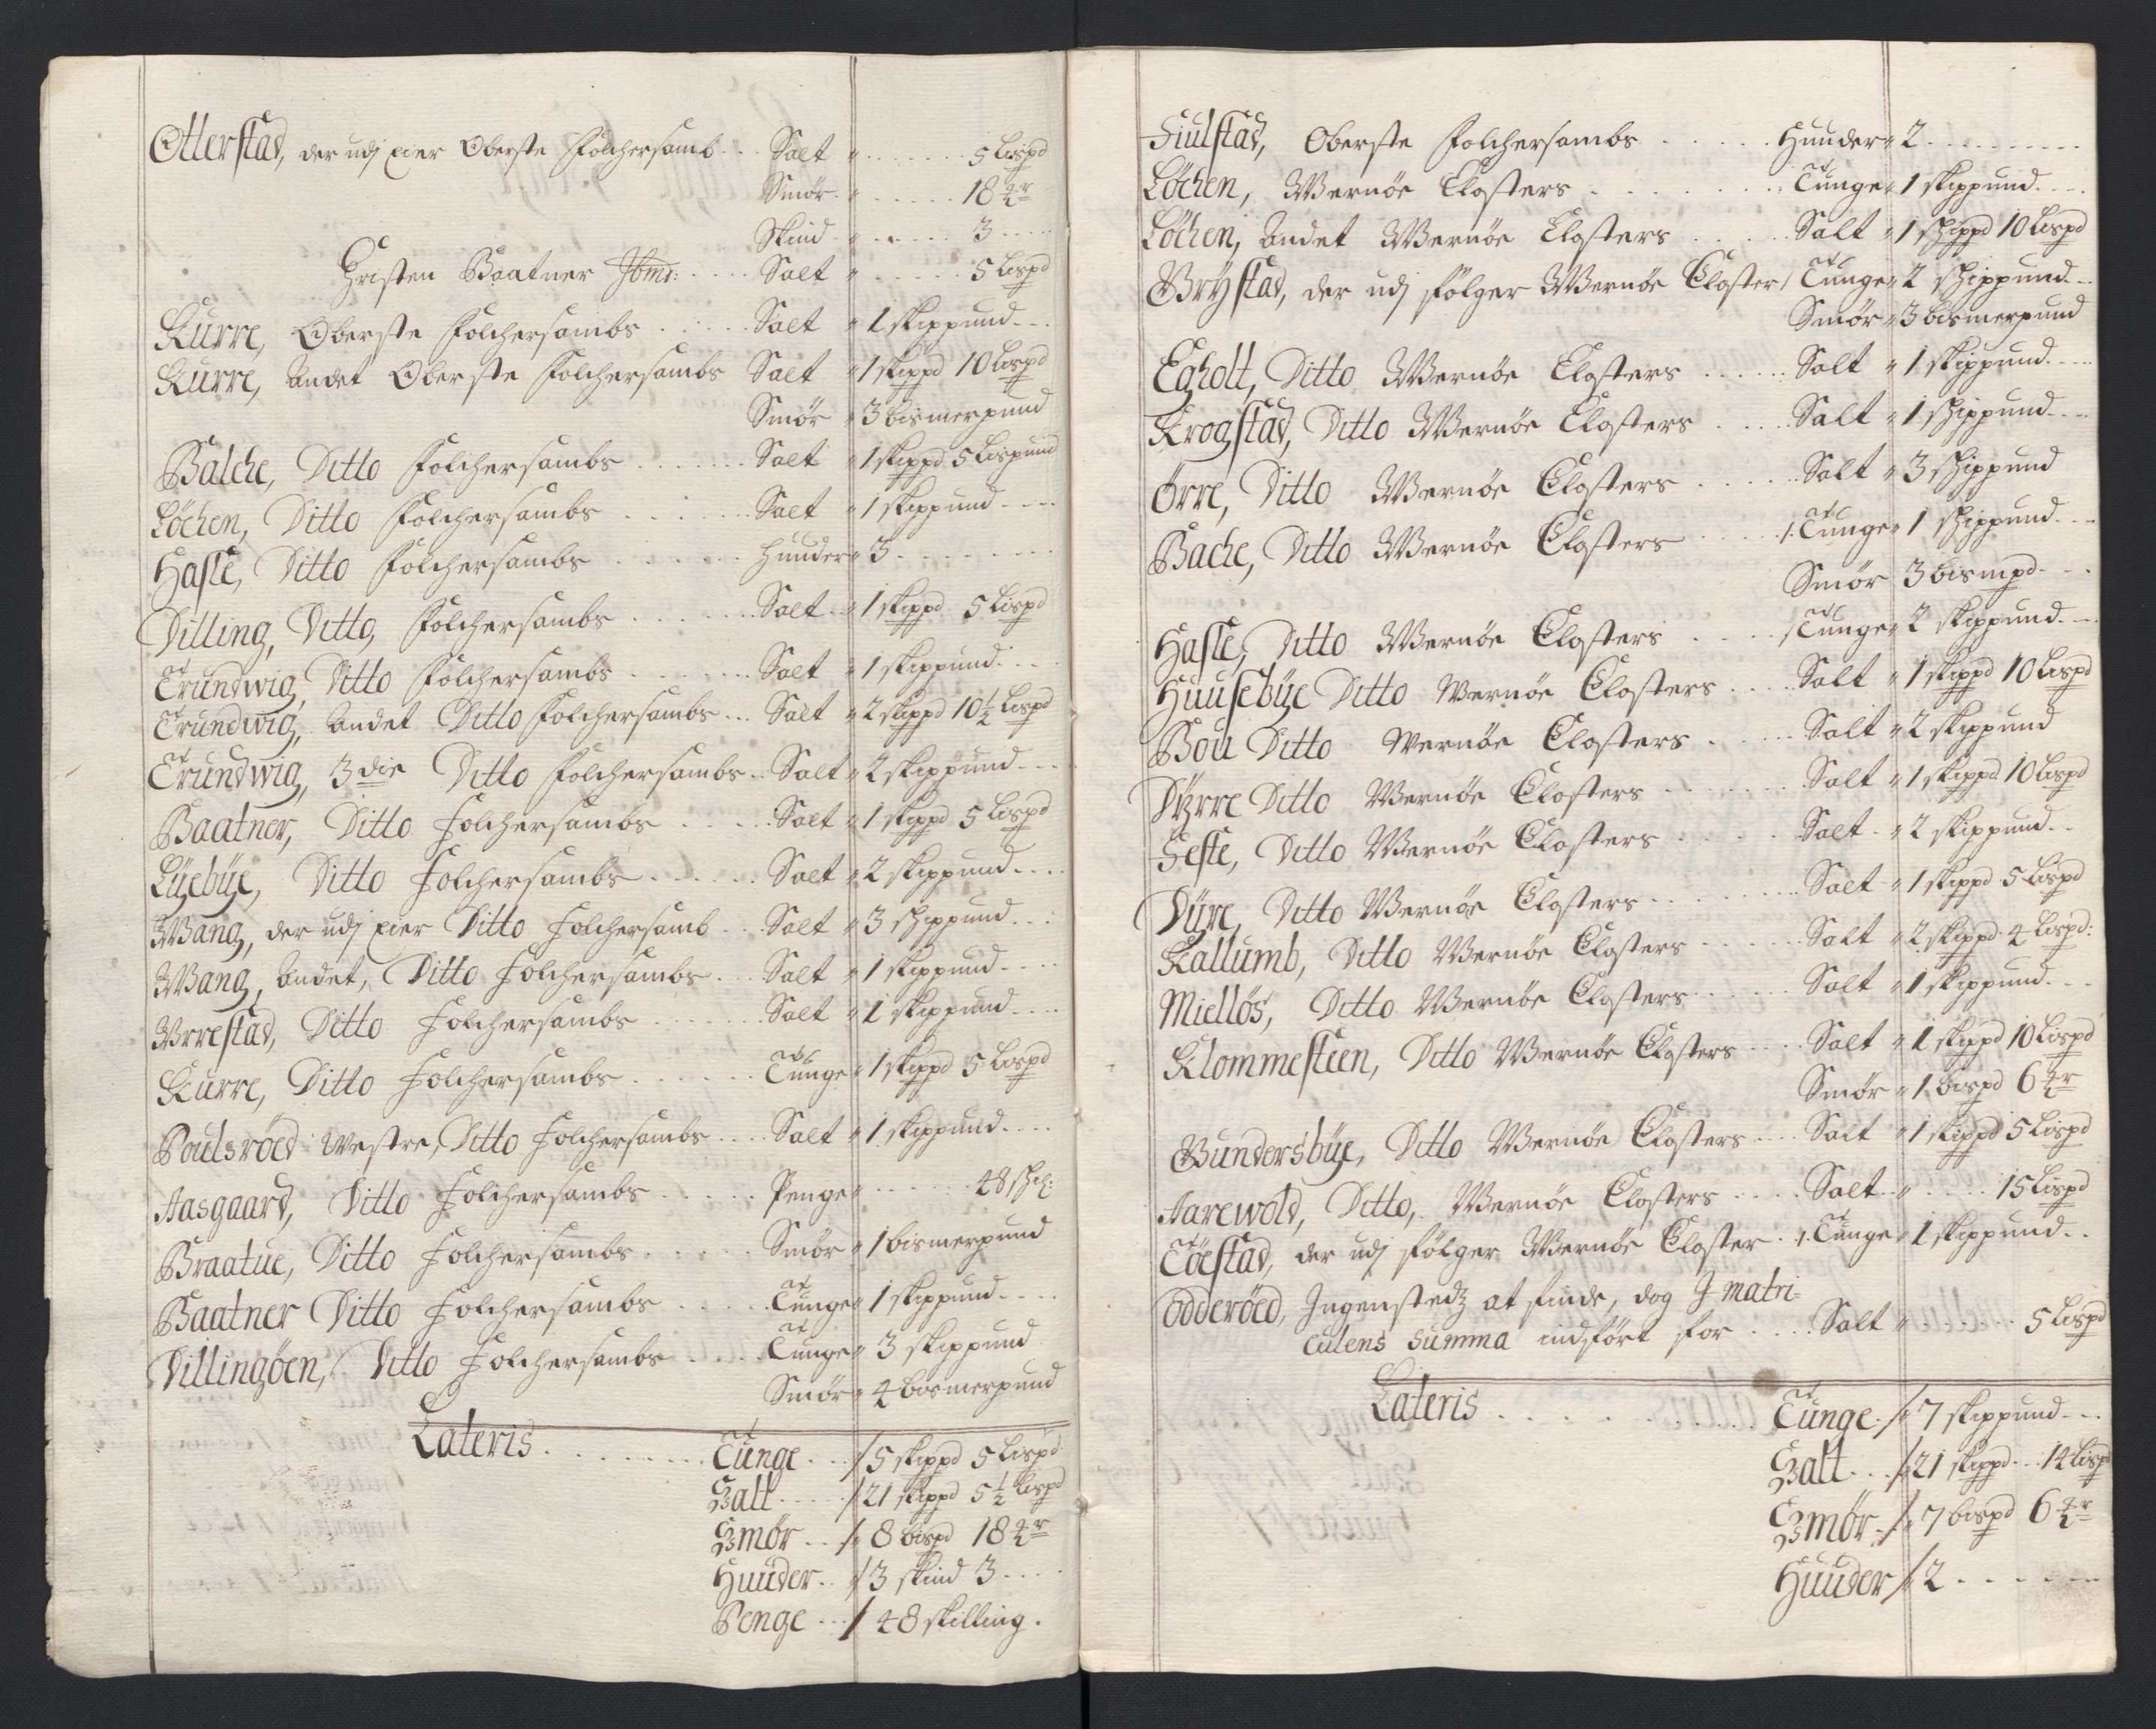 Otterstad, der udj eier Oberste Folchersamb . . . Salt " . . . . . . 5 Lispd
Smør . " . . . . . . 18 ¼r
Skind . " . . . . . 3 . . . .
Christen Baatner . . . . . Salt " . . . . . . 5 Lispd
Kurre, Oberste Folchersambs . . . . . Salt " 1 skippund . . .
Kurre, andet Oberste Folchersambs Salt " 1 skippd 10 Lispd
Smør " 3 bismerpund
Balche, Ditto Folchersambs . . . . . . Salt " 1 skippd 5 Lispund
Løchen, Ditto Folchersambs . . . . . . Salt " 1 skippund . . . .
Hasle, Ditto Folchersambs . . . . . . huuder " 3 . . . . . . . .
Dilling, Ditto, Folchersambs . . . . . . Salt " 1 skippd 5 Lispd
Trundwig, Ditto Folchersambs . . . . . . Salt " 1 skippund . . .
Trundwig, andet Ditto Folchersambs . . . Salt " 2 skippd 10½ Lispd
Trundwig, 3die Ditto Folchersambs . . Salt " 2 skippund . . .
Baatner, Ditto Folchersambs . . . . . Salt " 1 skippd 5 Lispd
Lÿebÿe, Ditto Folchersambs . . . . . . Salt " 2 skippund . . . .
Wang, der udj eier Ditto Folchersamb . . . Salt " 3 skippund . . .
Wang, andet, Ditto Folchersambs . . . Salt " 1 skippund . . . .
Wrrestad, Ditto Folchersambs . . . . . . Salt " 1 skippund . . . .
Kurre, Ditto Folchersambs . . . . . . Tunge " 1 skippd 5 Lispd
Poulsrøed Westre, Ditto Folchersambs . . . . Salt " 1 skippund . . . .
Aasgaard, Ditto Folchersambs . . . . . Penge " . . . . . . 48 sch:
Braatue, Ditto Folchersambs . . . . . . Smør " 1 bismerpund
Baatner Ditto Folchersambs . . . . . Tunge " 1 skippund . . . .
Dillingøen, Ditto Folchersambs . . . . Tunge " 3 skippund
Smør " 4 bismerpund
Lateris . . . . . . . . Tunge . . . / 5 skippd 5 Lispd
Salt . . . . / 21 skippd 5½ Lispd
Smør . . / 8 bispd 18 ¼r
Huuder . . / 3 skind 3 . . . .
Penge . . . / 48 skilling .
Fiulstad, Oberste Folchersambs . . . . . Huuder " 2 . . . . . . . . .
Løchen, Wernøe Closters . . . . . . . Tunge " 1 skippund . . . .
Løchen, andet Wernøe Closters . . . . . Salt " 1 skippd 10 Lispd
Brÿstad, der udj følger Wernøe Closter / Tunge " 2 skippund . . .
Smør " 3 bismerpund
Egholt, Ditto Wernøe Closters . . . . . Salt " 1 skippund . . . .
Krogstad, Ditto Wernøe Closters . . . . Salt " 1 skippund . . . .
Ørre, Ditto Wernøe Closters . . . . . Salt " 3 skippund
Bache, Ditto Wernøe Closters . . . . /. Tunge " 1 skippund . . . .
Smør 3 bismpd . . .
Hasle, Ditto Wernøe Closters . . . . / Tunge " 2 skippund . . .
Huusebÿe Ditto Wernøe Closters . . . . Salt " 1 skippd 10 Lispd
Bou Ditto Wernøe Closters . . . . Salt " 2 skippund
Dÿrre Ditto Wernøe Closters . . . . . . Salt " 1 skippd 10 Lispd
Feste, Ditto Wernøe Closters . . . . Salt . " 2 skippund . .
Dÿre, Ditto Wernøe Closters . . . . . . Salt . " 1 skippd 5 Lispd
Kallumb, Ditto Wernøe Closters . . . . . Salt " 2 skippd 4 Lispd:
Mielløs, Ditto Wernøe Closters . . . . . Salt " 1 skippund . . .
Klommesteen, Ditto Wernøe Closters . . . . Salt " 1 skippd 10 Lispd
Smør " 1 bispd 6 ¼r
Gundersbÿe, Ditto Wernøe Closters . . . . Salt " 1 skippd 5 Lispd
Aarewold, Ditto, Wernøe Closters . . . . Salt . . " . . . . 15 Lispd
Tøestad, der udj følger Wernøe Closter . /. Tunge " 1 skippund . .
Odderøed, Ingenstedz at finde, dog J matri-
culens Summa indført for . . . . Salt " . . . . . . 5 Lispd
Lateris . . . . . . . . . . Tunge . / " 7 skippund . . .
Salt . . . / " 21 skippd . . 14 Lispd
Smør . / " 7 bispd 6 ¼r
Huuder / " 2 . . . . . .